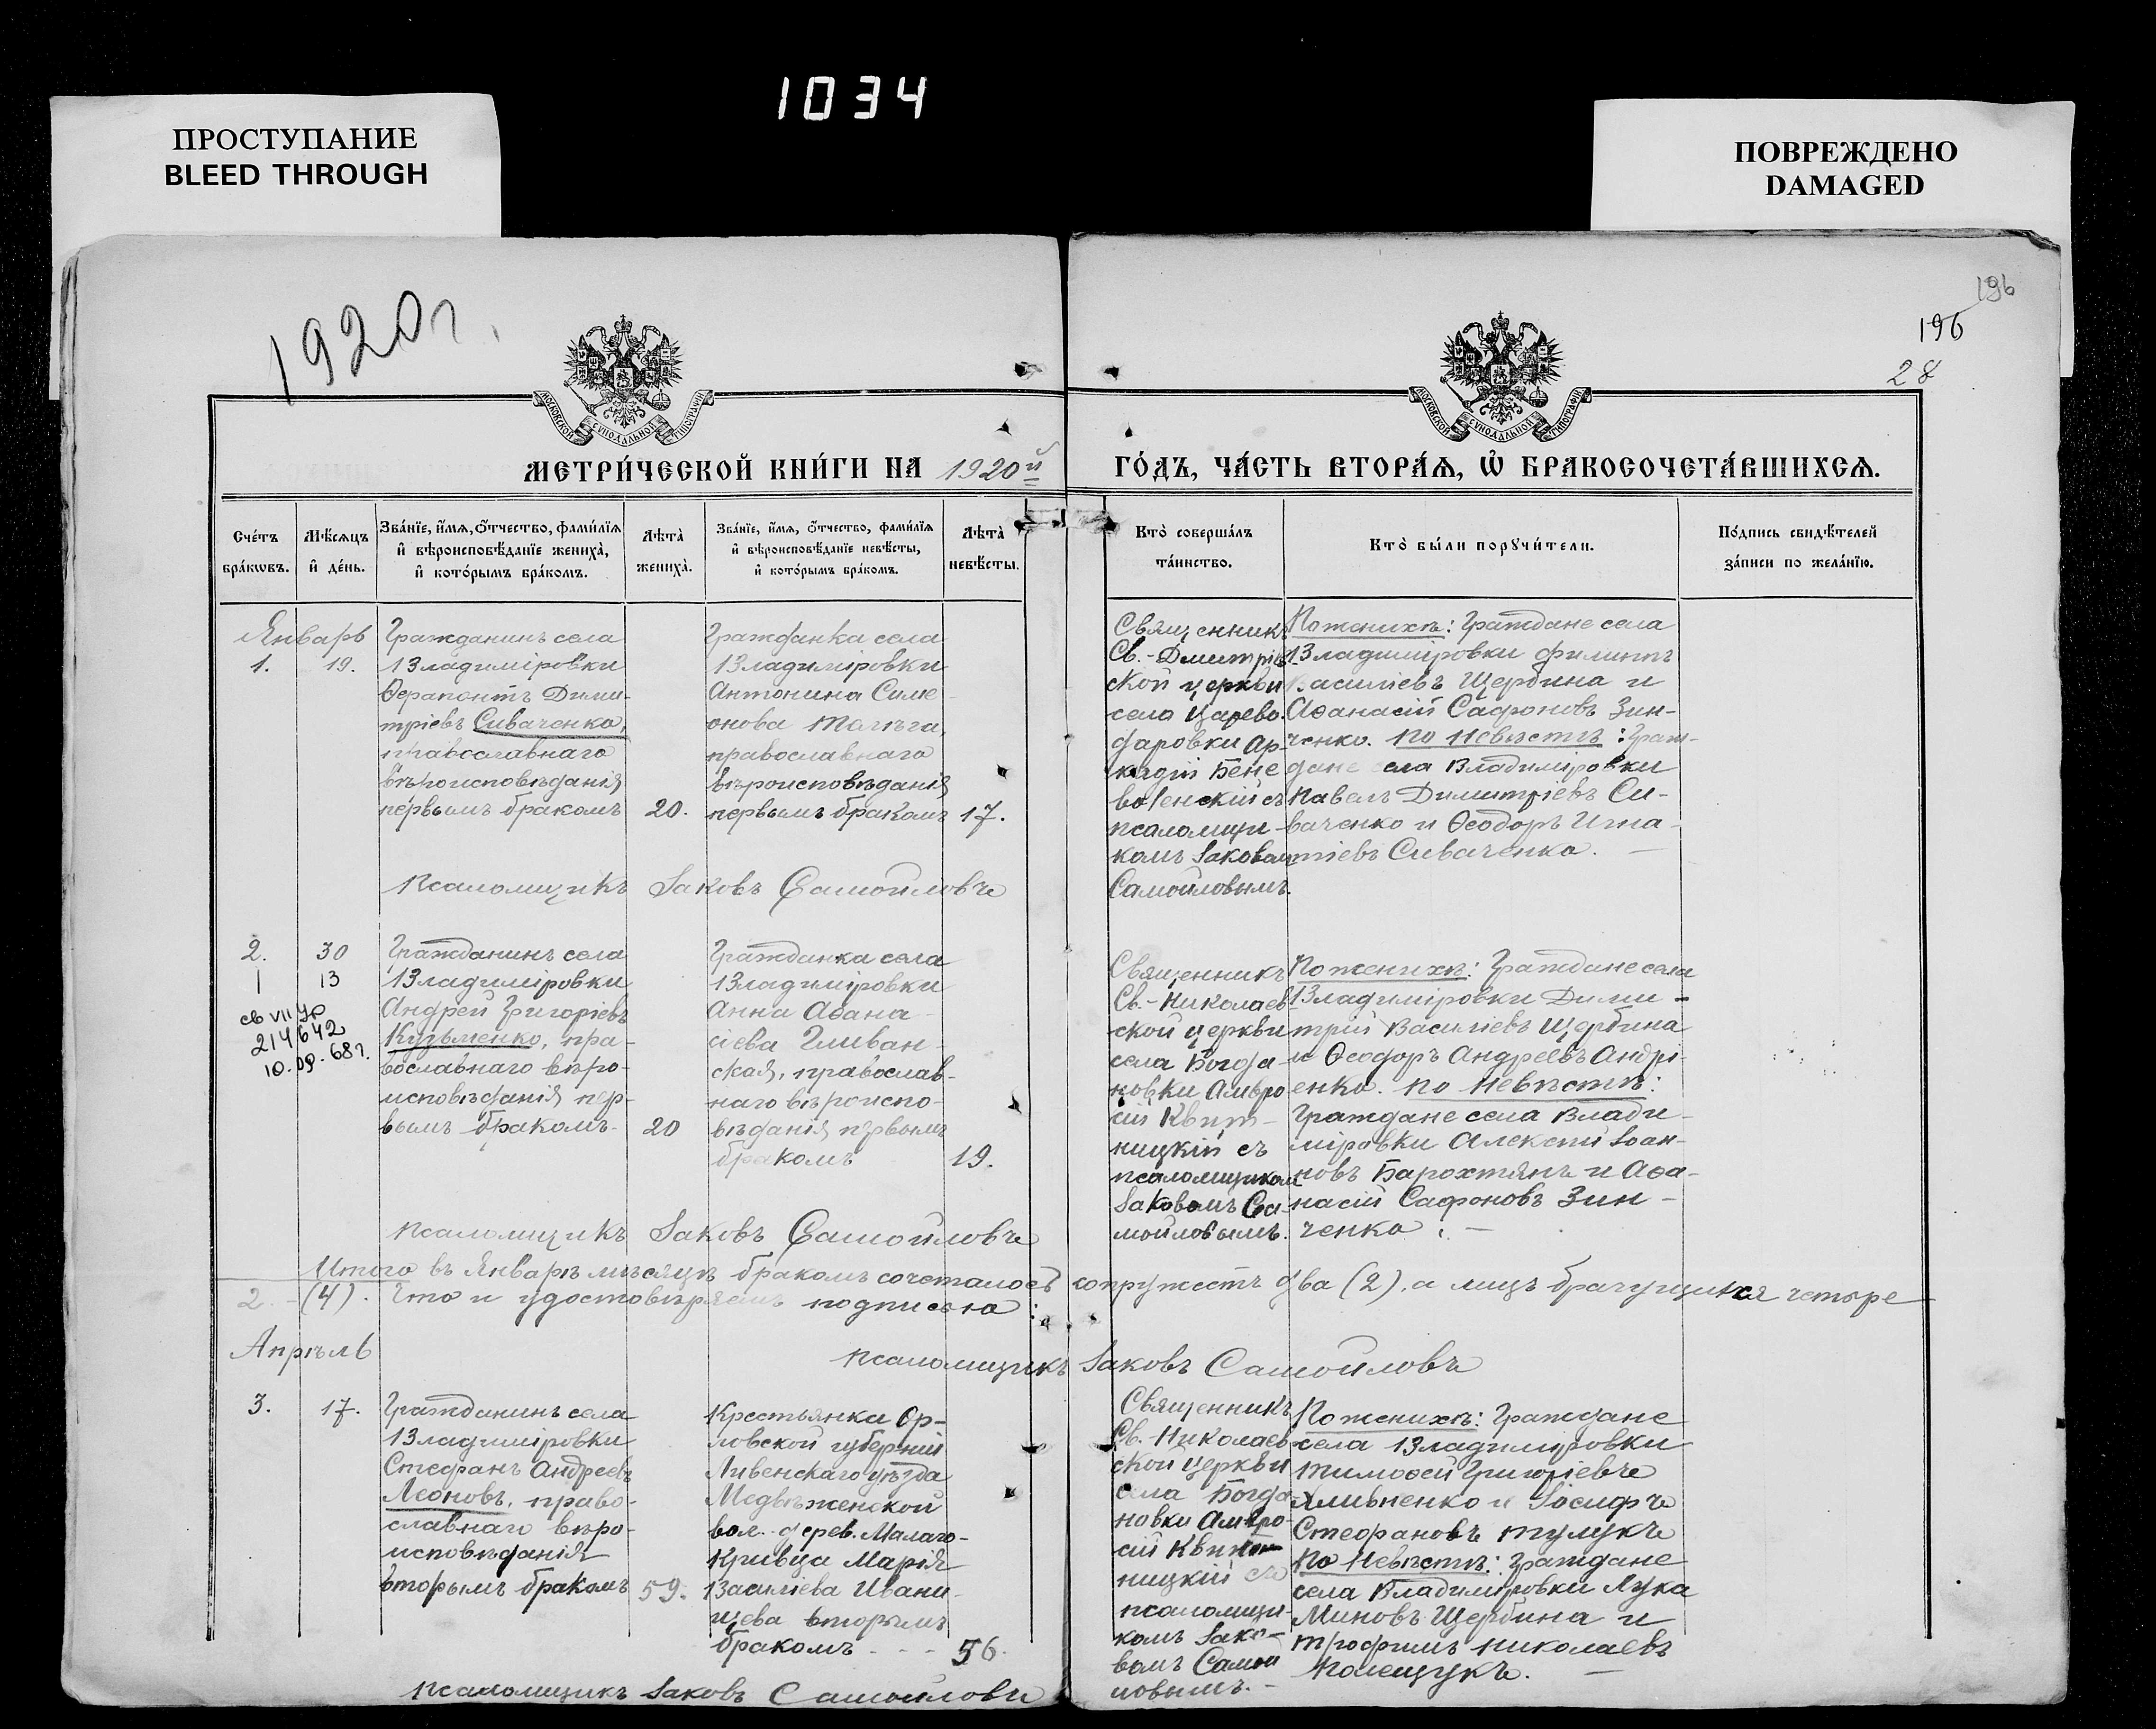 1034
ПРОСТУПАНИЕ
BLEED THROUGH
ПОВРЕЖДЕНО
DAMAGED
1920 г.
196
196
28
МОСКОВСКОЙ СУНОДАЛЬНОЙ ТИПОГРАФІИ
МОСКОВСКОЙ СУНОДАЛЬНОЙ ТИПОГРАФІИ
МЕТРИ́ЧЕСКОЙ КНИ́ГИ НА 1920й
ГО́ДЪ, ЧА́СТЬ ВТОРА́Ѧ, Ѽ БРАКОСОЧЕТА́ВШИХСѦ.
Сче́тъ
бра́кѡвъ.
Мѣ́сѧцъ
и҆ де́нь.
Зва́нїе, и҆́мѧ, ѻ҆́тчество, фами́лїѧ
и҆ вѣроисповѣ́данїе жениха̀,
и҆ кото́рымъ бра́комъ.
Лѣта̀
жениха̀.
Зва́нїе, и҆́мѧ, ѻ҆́тчество, фами́лїѧ
и҆ вѣроисповѣ́данїе невѣ́сты,
и҆ кото́рымъ бра́комъ.
Лѣта̀
невѣ́сты.
Кто̀ соверша́лъ
та́инство.
Кто̀ бы́ли порꙋчи́тели.
По́дпись свидѣ́телей
за́писи по жела́нїю.
Январь
1.
19.
Гражданинъ села
Владиміровки
Ѳерапонтъ Дими-
тріевъ Сиваченко,
православнаго
вѣроисповѣданія
первымъ бракомъ
20.
Гражданка села
Владиміровки
Антонина Симе-
онова
православнаго
вѣроисповѣданія
первымъ бракомъ
17.
Священникъ
Св.-Димитріев-
ской церкви
села Царево-
даровки Ар-
кадій Бене-
воленскій съ
псаломщи-
комъ Іаковомъ
Самойловымъ.
По женихѣ: Граждане села
Владиміровки Филиппъ
Василіевъ Щербина и
Аѳанасій Сафоновъ Зин-
ченко. По невѣстѣ: Граж-
дане села Владиміровки
Павелъ Димитріевъ Си-
ваченко и Ѳеодоръ Игна-
тіевъ Сиваченко. —
Псаломщикъ Іаковъ Самойловъ
2.
30
1
13
св VII УР
214642
10.09.68г.
Гражданинъ села
Владиміровки
Андрей Григоріевъ
Кузьменко, пра-
вославнаго вѣро-
исповѣданія пер-
вымъ бракомъ.
20
Гражданка села
Владиміровки
Анна Аѳана-
сіева Гливан-
ская, православ-
наго вѣроиспо-
вѣданія первымъ
бракомъ
19.
Священникъ
Св.-Николаев-
ской церкви
села Богда-
новки Амвро-
сій Квит-
ницкій съ
псаломщикомъ
Іаковомъ Са-
мойловымъ.
По женихѣ: Граждане села
Владиміровки Дими-
трій Василіевъ Щербина
и Ѳеодоръ Андреевъ Андрі-
енко. По невѣстѣ:
Граждане села Влади-
міровки Алексій Іоан-
новъ Барохтянъ и Аѳа-
насій Сафоновъ Зин-
ченко. —
Псаломщикъ Іаковъ Самойловъ
Итого въ Январѣ мѣсяцѣ бракомъ сочеталось супружествъ два (2), а лицъ брачущихся четыре
2. - (4). Что и удостовѣряемъ подписью:
Псаломщикъ Іаковъ Самойловъ
Апрѣль
3.
17.
Гражданинъ села
Владиміровки
Стефанъ Андреевъ
Леоновъ, право-
славнаго вѣро-
исповѣданія
вторымъ бракомъ
59.
Крестьянка Ор-
ловской губерніи
Ливенскаго уѣзда
Медвѣженской
вол. дерев. Малаго-
Кривца Марія
Василіева Ивани-
щева вторымъ
бракомъ - - -
56.
Священникъ
Св.-Николаев-
ской церкви
села Богда-
новки Амвро-
сій Квит-
ницкій съ
псаломщи-
комъ Іако-
вомъ Самой-
ловымъ. -
По женихѣ: Граждане
села Владиміровки
Тимоѳей Григоріевъ
Хливненко и Іосифъ
Стефановъ Тулукъ
По невѣстѣ: Граждане
села Владиміровки Лука
Миновъ Щербина и
Трофимъ Николаевъ
Полещукъ. —
Псаломщикъ Іаковъ Самойловъ